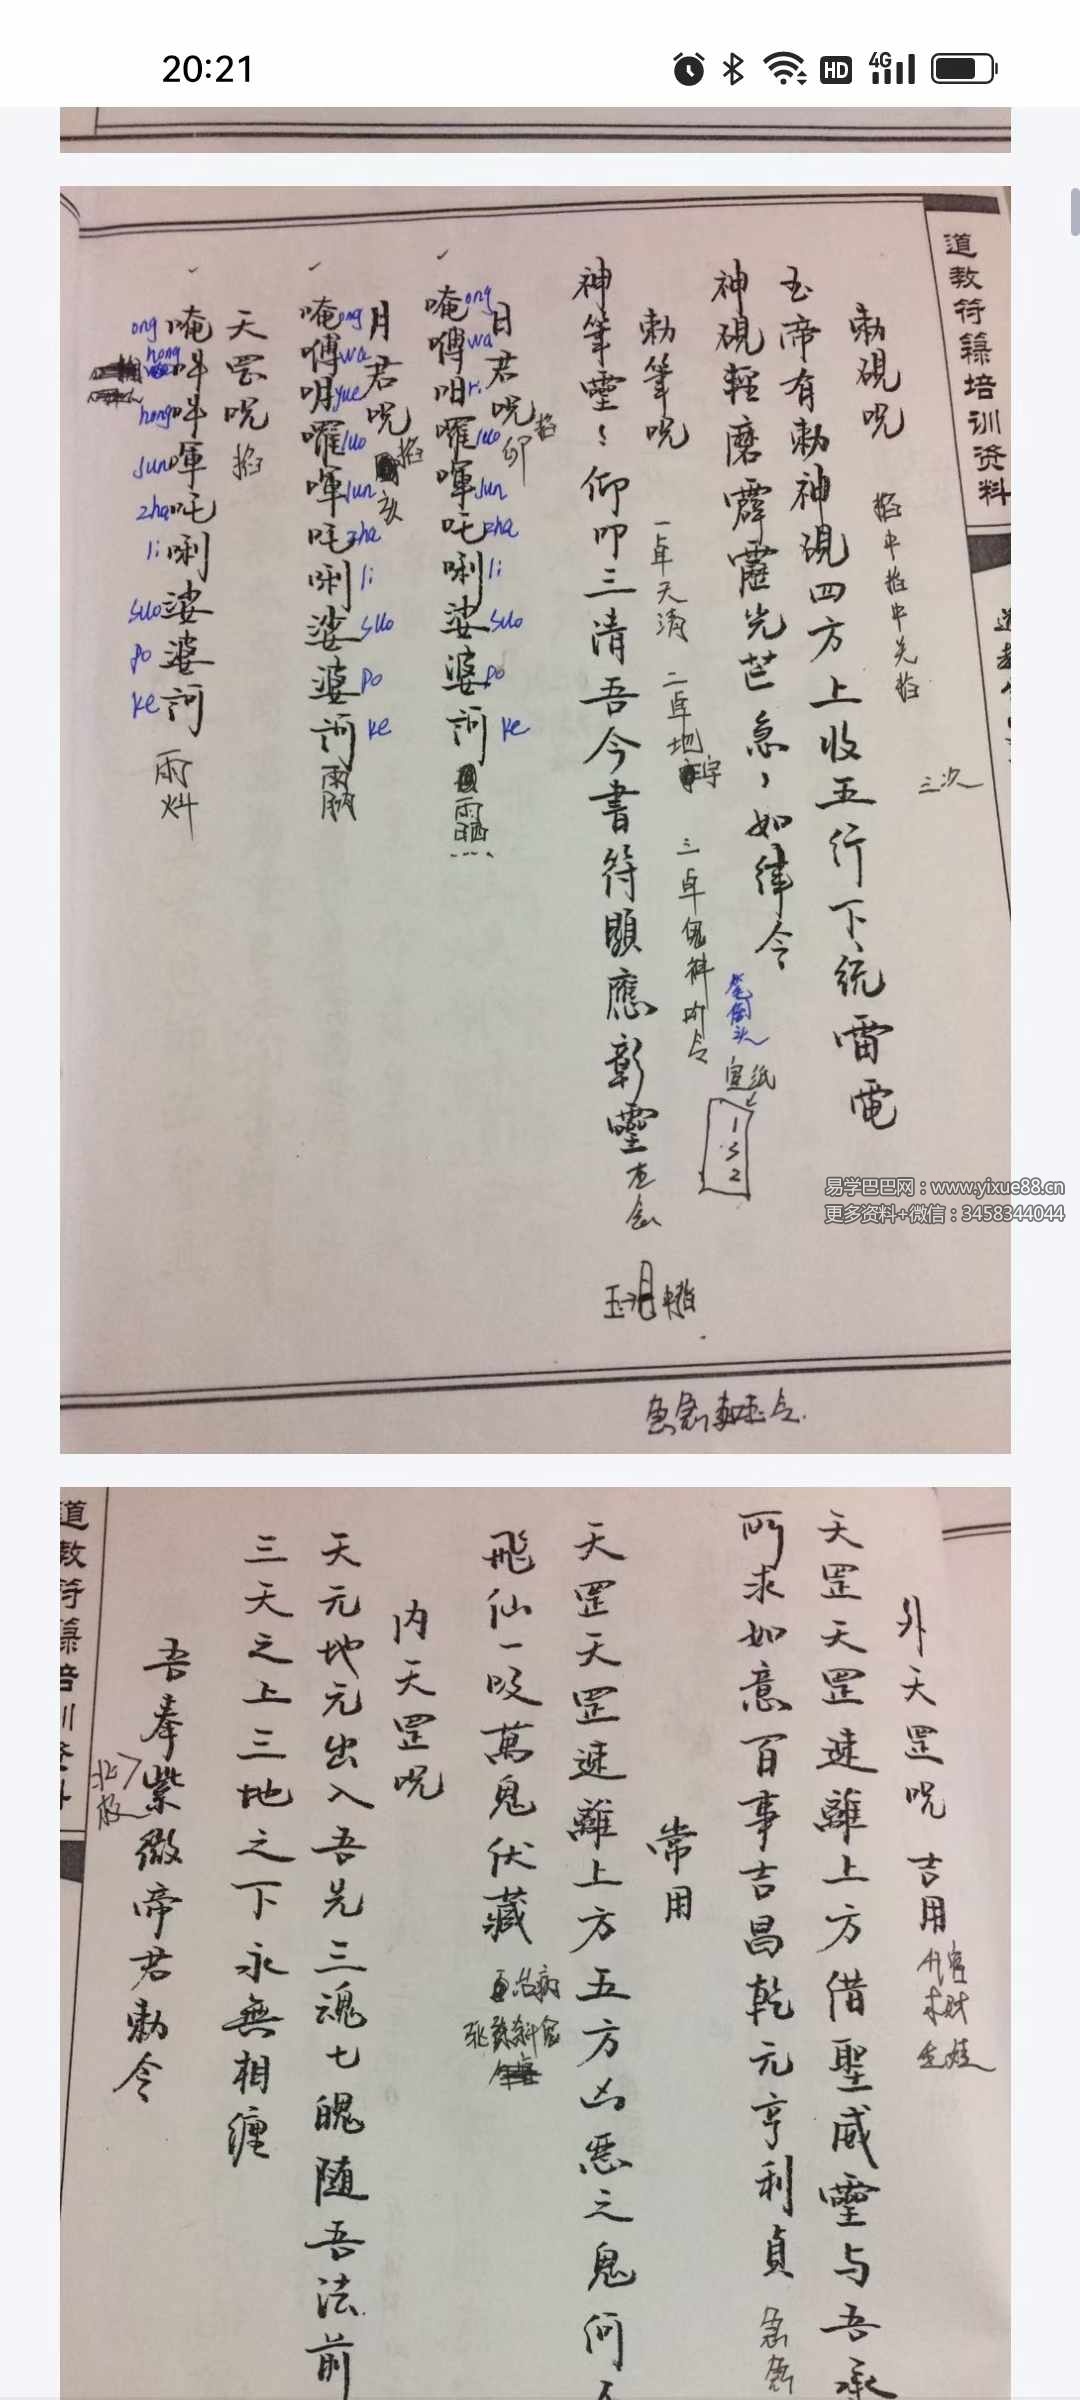 20:21
HD
4G
道教符籙培训资料
勅硯呪
三次
玉帝有勅神硯四方上收五行下统雷電
神硯輕磨霹靂光芒急々如律令
笔倒头
宣纸
1
3
2
勅筆呪
一卓天清 二卓地宁
神筆靈々仰叩三清吾今書符顯應彰靈
急急
日君呪
掐
卯
唵 ong
嚩 wa
囸 ri
囉 luo
㖷 jun
吒 zha
唎 li
娑 suo
婆 po
訶 ke
月君呪
掐
唵 ong
嚩 wa
明 yue
囉 luo
㖷 jun
吒 zha
唎 li
娑 suo
婆 po
訶 ke
天罡呪
掐
唵 ong
吽 hong
吽 hong
㖷 jun
吒 zha
唎 li
娑 suo
婆 po
訶 ke
易学巴巴网：www.yixue88.cn
更多资料+微信：3458344044
外天罡呪 吉用
求财
天罡天罡速離上方借聖威靈与吾承
所求如意百事吉昌乾元亨利貞
常用
天罡天罡速離上方五方凶惡之鬼何
飛仙一吸萬鬼伏藏
治病
内天罡呪
天元地元出入吾先三魂七魄随吾法前
三天之上三地之下永無相纏
吾奉紫微帝君勅令
北极
道教符籙